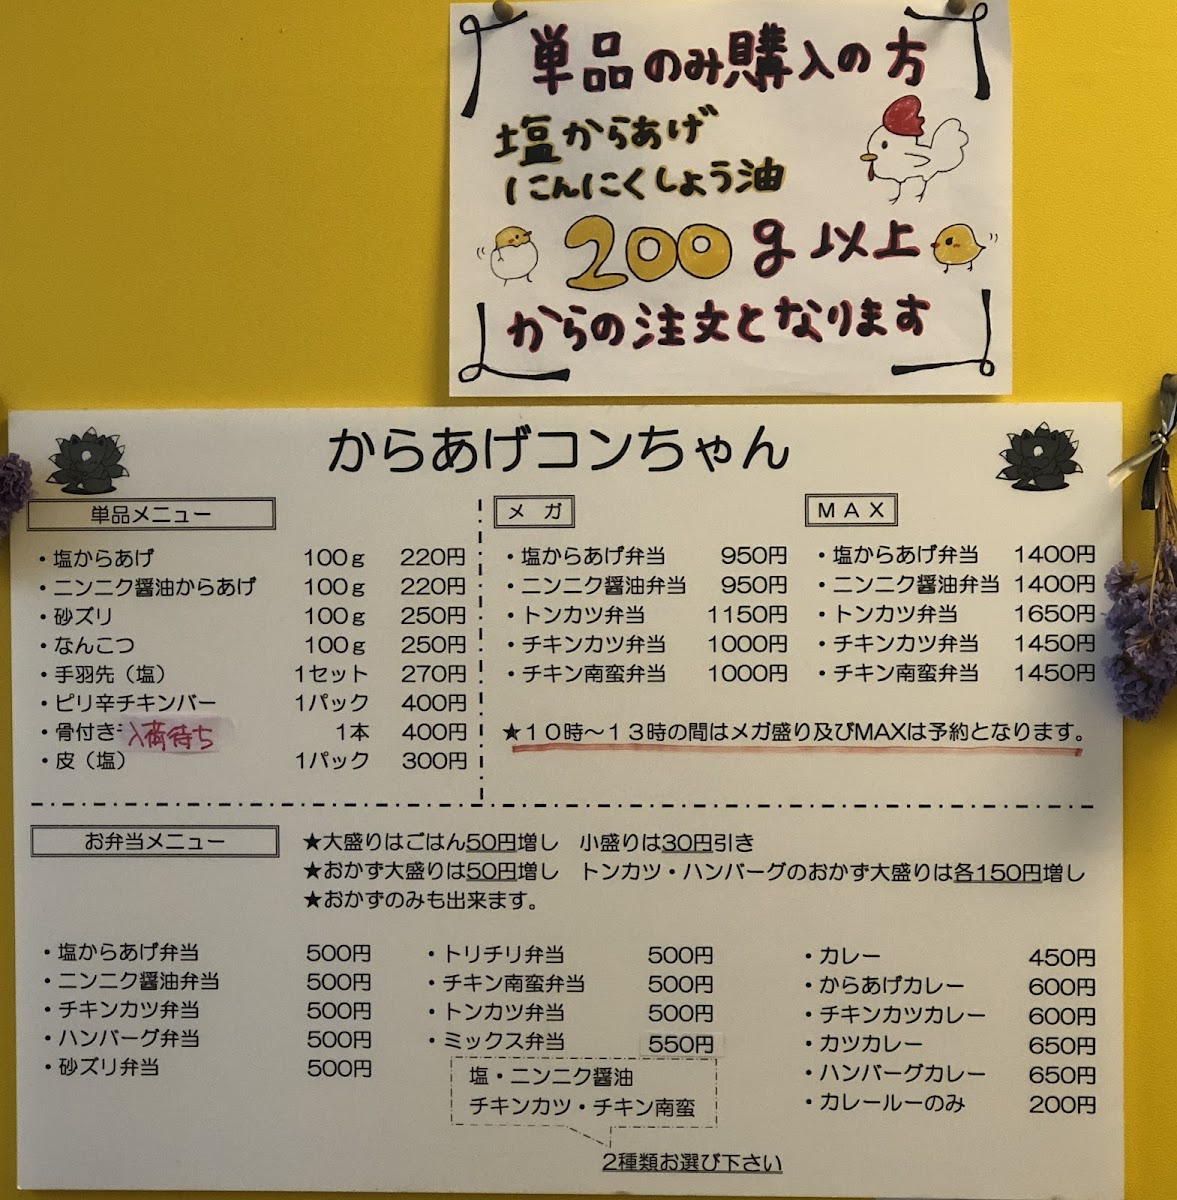 単品のみ購入の方
塩からあげ
にんにくしょう油
200g以上
からの注文となります
からあげコンちゃん
単品メニュー
・塩からあげ 100g 220円
・ニンニク醤油からあげ 100g 220円
・砂ズリ 100g 250円
・なんこつ 100g 250円
・手羽先（塩） 1セット 270円
・ピリ辛チキンバー 1パック 400円
・骨付き 入荷待ち 1本 400円
・皮（塩） 1パック 300円
メガ
・塩からあげ弁当 950円
・ニンニク醤油弁当 950円
・トンカツ弁当 1150円
・チキンカツ弁当 1000円
・チキン南蛮弁当 1000円
MAX
・塩からあげ弁当 1400円
・ニンニク醤油弁当 1400円
・トンカツ弁当 1650円
・チキンカツ弁当 1450円
・チキン南蛮弁当 1450円
★１０時～１３時の間はメガ盛り及びMAXは予約となります。
お弁当メニュー
★大盛りはごはん50円増し　小盛りは30円引き
★おかず大盛りは50円増し　トンカツ・ハンバーグのおかず大盛りは各150円増し
★おかずのみも出来ます。
・塩からあげ弁当 500円
・ニンニク醤油弁当 500円
・チキンカツ弁当 500円
・ハンバーグ弁当 500円
・砂ズリ弁当 500円
・トリチリ弁当 500円
・チキン南蛮弁当 500円
・トンカツ弁当 500円
・ミックス弁当 550円
塩・ニンニク醤油
チキンカツ・チキン南蛮
2種類お選び下さい
・カレー 450円
・からあげカレー 600円
・チキンカツカレー 600円
・カツカレー 650円
・ハンバーグカレー 650円
・カレールーのみ 200円